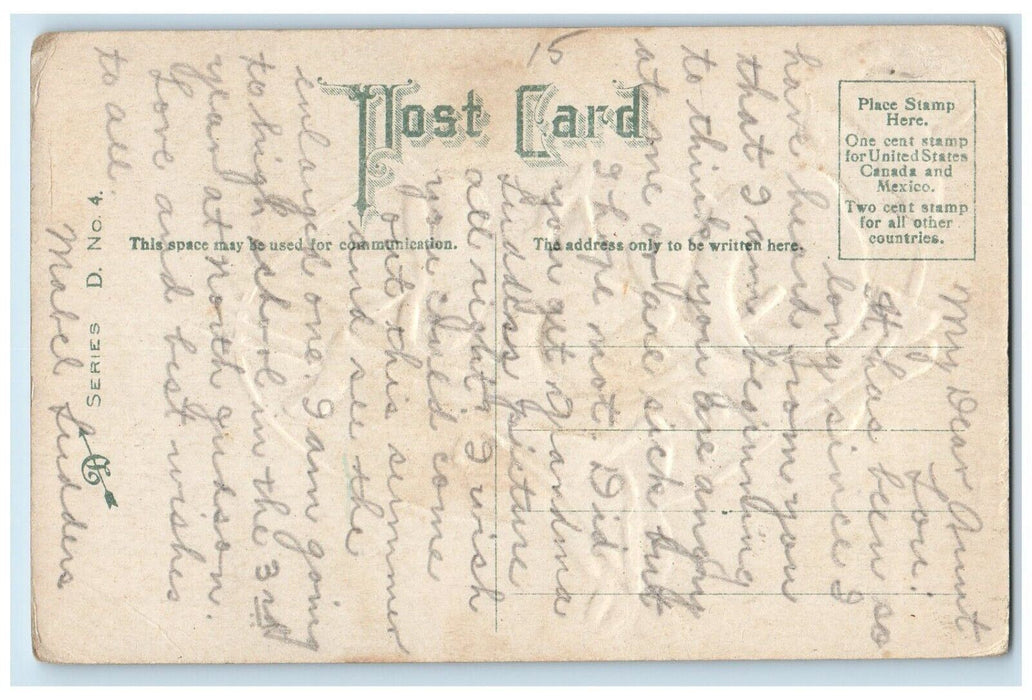 Post Card
This space may be used for communication.
The address only to be written here.
Place Stamp
Here.
One cent stamp
for United States
Canada and
Mexico.
Two cent stamp
for all other
countries.
SERIES D. No. 4.
15
My Dear Aunt
Lou:
It has been so
long since I
have heard from you
that I am beginning
to think you are angry
at me or are sick but
I hope not. Did
you get Grandma
Ludders picture
all right. I wish
you could come
out this summer
and see the
enlarged one. I am going
to high school in the 3rd
year at north Judson.
Love and best wishes
to all.
Mabel Ludders